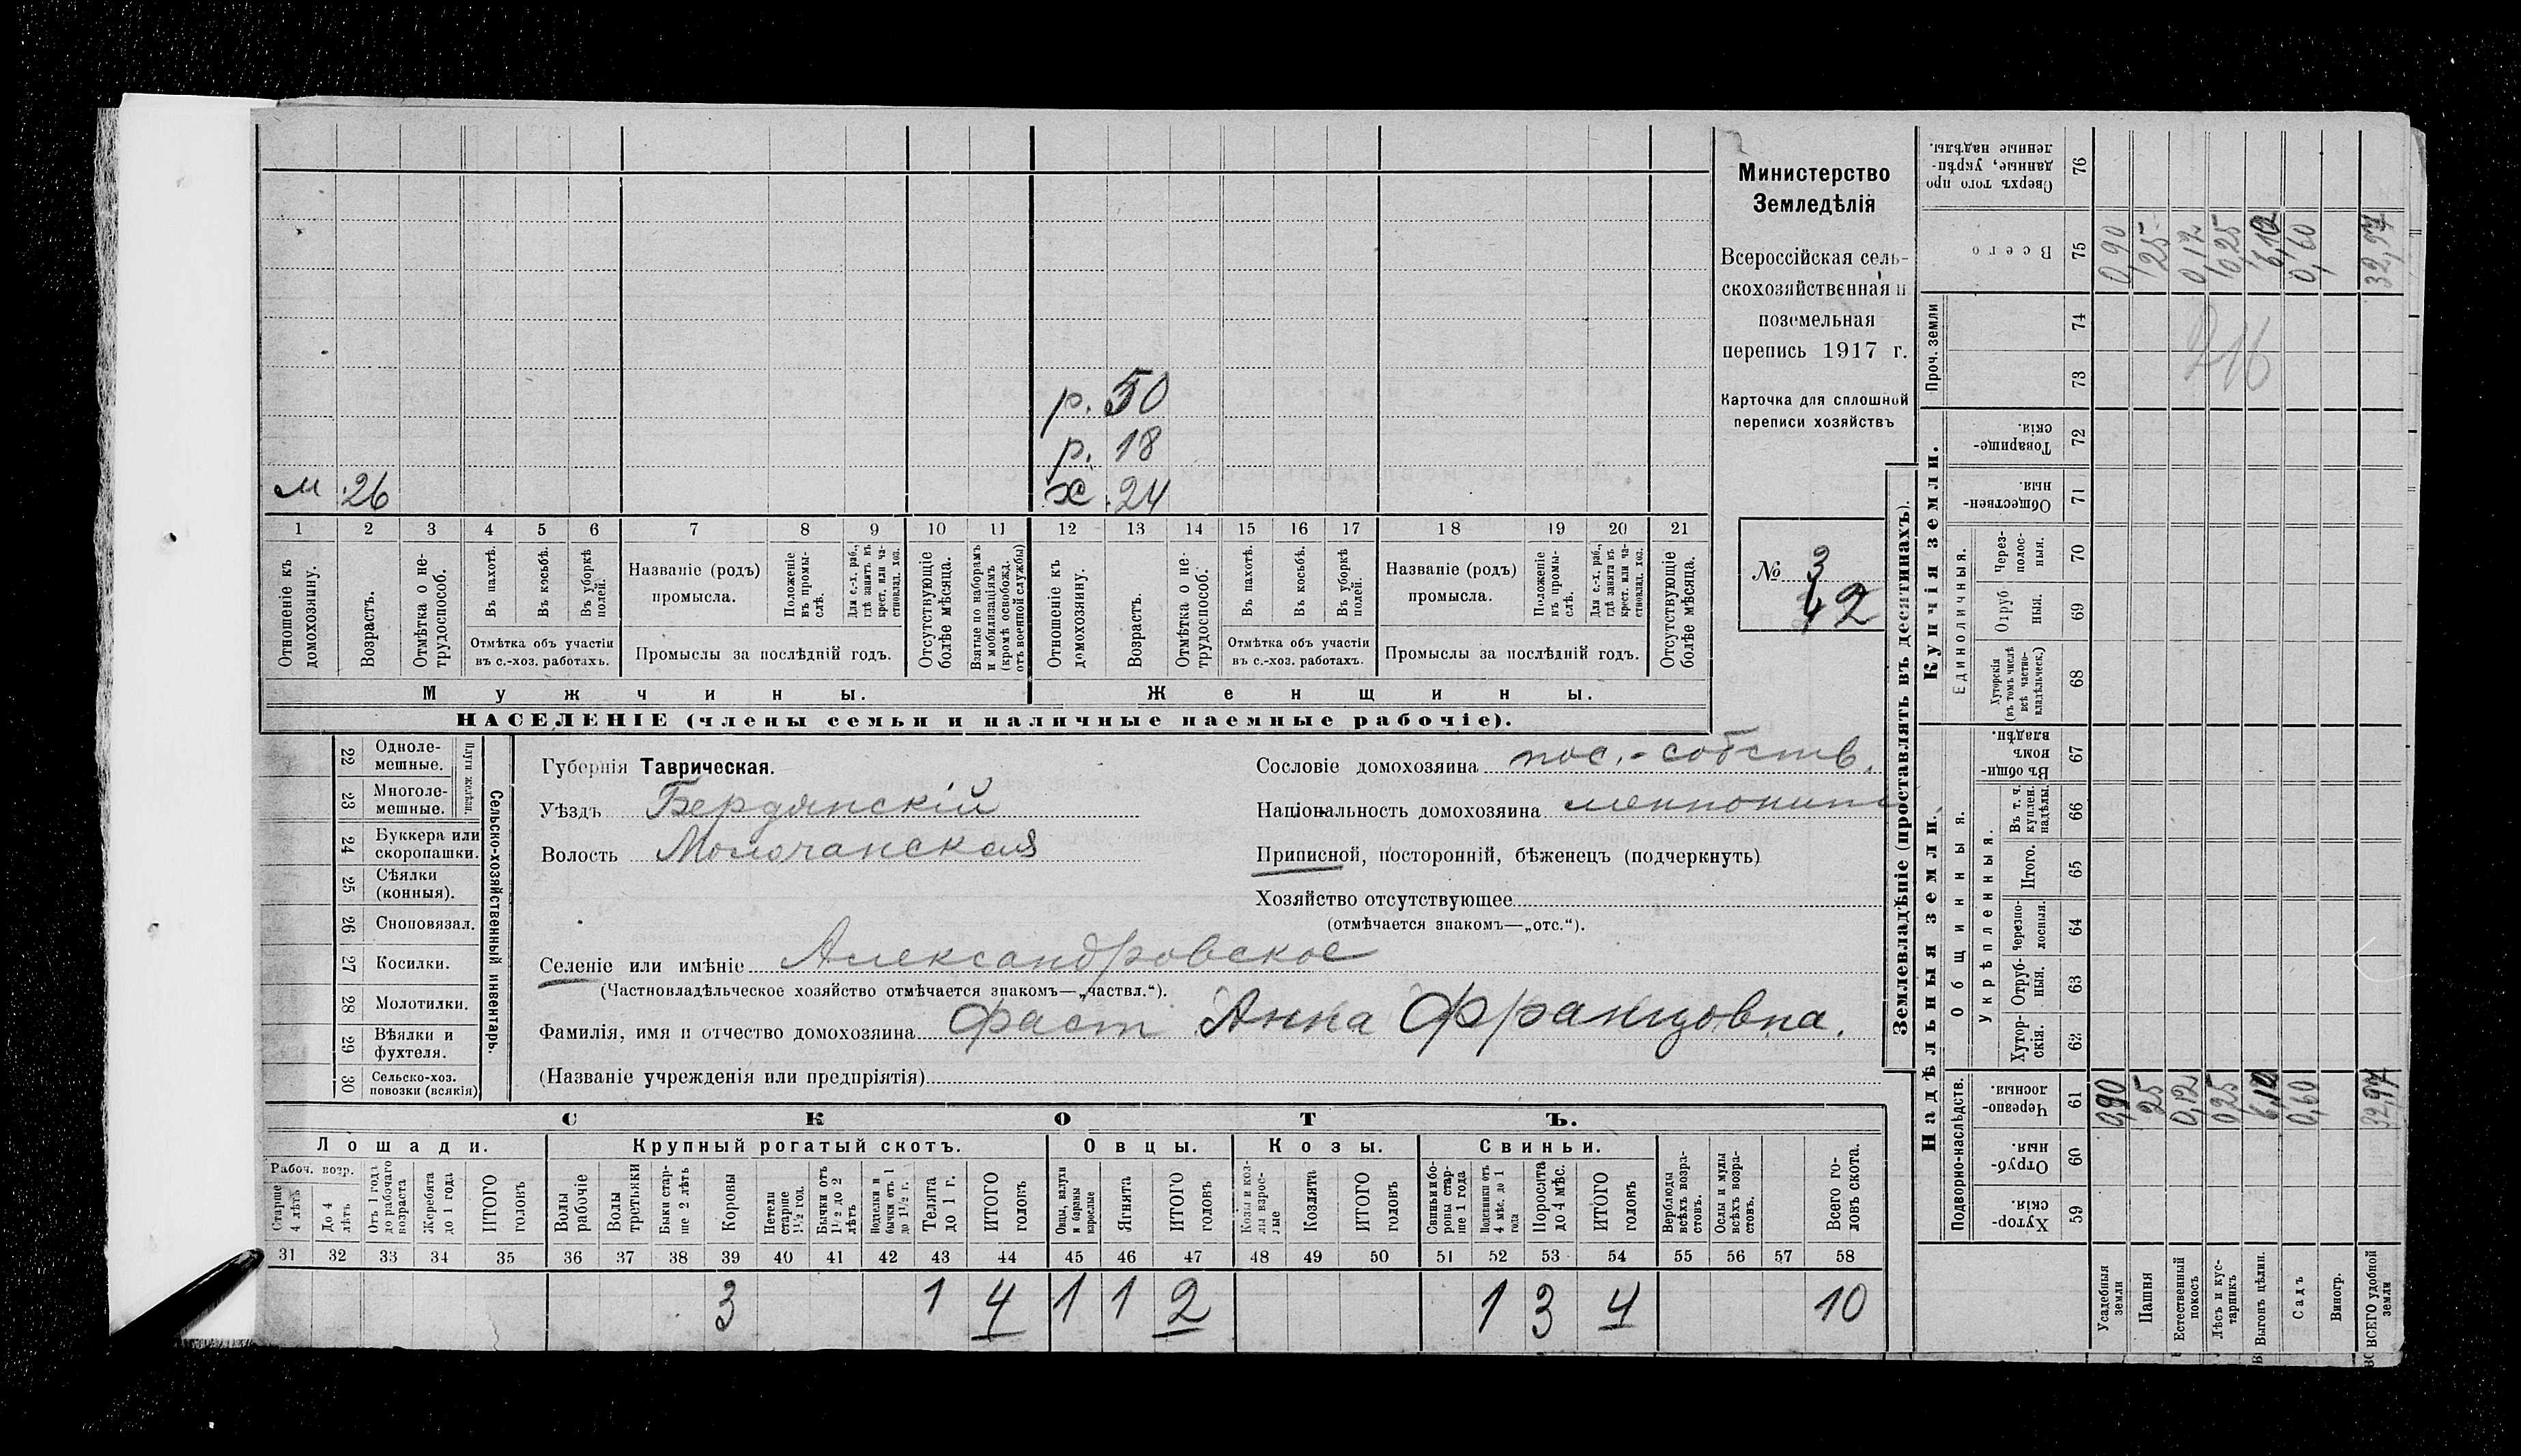 р. 50
р. 18
м 26
х. 24
1 2 3 4 5 6 7 8 9 10 11 12 13 14 15 16 17 18 19 20 21
Отношеніе къ домохозяину.
Возрастъ.
Отмѣтка о не-трудоспособ.
Въ пахотѣ.
Въ косьбѣ.
Въ уборкѣ полей.
Отмѣтка объ участіи
въ с.-хоз. работахъ.
Названіе (родъ)
промысла.
Положеніе въ промы-слѣ.
Для с.-х. раб., гдѣ занятъ въ крест. или ча-стновлад. хоз.
Промыслы за послѣдній годъ.
Отсутствующіе болѣе мѣсяца.
Взятые по наборамъ и мобилизаціямъ (кромѣ освобожд. отъ военной службы)
Отношеніе къ домохозяину.
Возрастъ.
Отмѣтка о не-трудоспособ.
Въ пахотѣ.
Въ косьбѣ.
Въ уборкѣ полей.
Отмѣтка объ участіи
въ с.-хоз. работахъ.
Названіе (родъ)
промысла.
Положеніе въ промы-слѣ.
Для с.-х. раб., гдѣ занята въ крест. или ча-стновлад. хоз.
Промыслы за послѣдній годъ.
Отсутствующіе болѣе мѣсяца.
Мужчины.
Женщины.
НАСЕЛЕНІЕ (члены семьи и наличные наемные рабочіе).
Министерство
Земледѣлія
Всероссійская сель-
скохозяйственная и
поземельная
перепись 1917 г.
Карточка для сплошной
переписи хозяйствъ
№ 3
42
22 Одноле-мешные.
23 Многоле-мешные.
24 Буккера или скоропашки.
25 Сѣялки (конныя).
26 Сноповязал.
27 Косилки.
28 Молотилки.
29 Вѣялки и фухтеля.
30 Сельско-хоз. повозки (всякія)
Сельско-хозяйственный инвентарь.
Губернія Таврическая.
Уѣздъ Бердянскій
Волость Молочанская
Сословіе домохозяина пос.-собств.
Національность домохозяина меннонит
Приписной, посторонній, бѣженецъ (подчеркнуть)
Хозяйство отсутствующее
(отмѣчается знакомъ—„отс.“).
Селеніе или имѣніе Александровское
(Частновладѣльческое хозяйство отмѣчается знакомъ—„частвл.“).
Фамилія, имя и отчество домохозяина Фаст Анна Францовна.
(Названіе учрежденія или предпріятія)
СКОТЪ.
Лошади. Крупный рогатый скотъ. Овцы. Козы. Свиньи.
Рабоч. возр.
Старше 4 лѣтъ
До 4 лѣтъ
Отъ 1 года до рабочаго возраста
Жеребята до 1 года
ИТОГО головъ
Волы рабочіе
Волы третьяки
Быки стар-ше 2 лѣтъ
Коровы
Нетели старше 1½ год.
Бычки отъ 1½ до 2 лѣтъ
Телята до 1 г.
ИТОГО головъ
Овцы, валухи и бараны взрослые
Ягнята
ИТОГО головъ
Козы и коз-лы взрос-лые
Козлята
ИТОГО головъ
Свиньи и бо-ровы стар-ше 1 года
Подсвинки отъ 4 мѣс. до 1 года
Поросята до 4 мѣс.
ИТОГО головъ
Верблюды всѣхъ возра-стовъ.
Ослы и мулы всѣхъ возра-стовъ.
Всего го-ловъ скота.
31 32 33 34 35 36 37 38 39 40 41 42 43 44 45 46 47 48 49 50 51 52 53 54 55 56 57 58
3 1 4 1 1 2 1 3 4 10
Землевладѣніе (проставлять въ десятинахъ).
Надѣльныя земли.
Купчія земли.
Проч. земли
Подворно-наслѣдств.
Общинныя.
Укрѣпленныя.
Единоличныя.
Сверхъ того про-данные, укрѣп-ленные надѣлы. 76
Всего 75
74
73
Товарище-скія. 72
Обществен-ныя. 71
Через-полос-ныя. 70
Отруб-ныя. 69
Хуторскія (въ томъ числѣ всѣ частно-владѣльческ.) 68
Въ общи-номъ владѣн. 67
Въ т. ч. куплен. надѣлы. 66
Итого. 65
Черезпо-лосныя. 64
Отруб-ныя. 63
Хутор-скія. 62
Черезпо-лосныя. 61
Отруб-ныя. 60
Хутор-скія. 59
Усадебныя земли 0,90 0,90
Пашня 25 25
Естественный покосъ 0,12 0,12
Лѣсъ и кус-тарникъ 0,25 0,25
Выгонъ цѣлин. 6,10 6,10
Садъ 0,60 0,60
Виногр.
ВСЕГО удобной земли 32,97 32,97